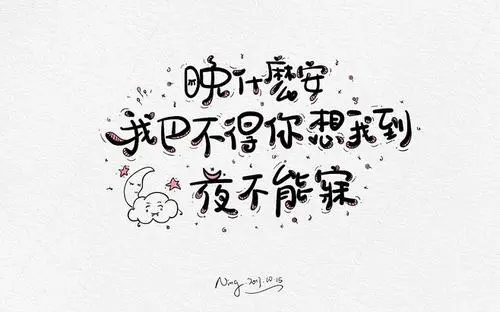 晚什麼安
我巴不得你想我到
夜不能寐
Ning.2017.10.15